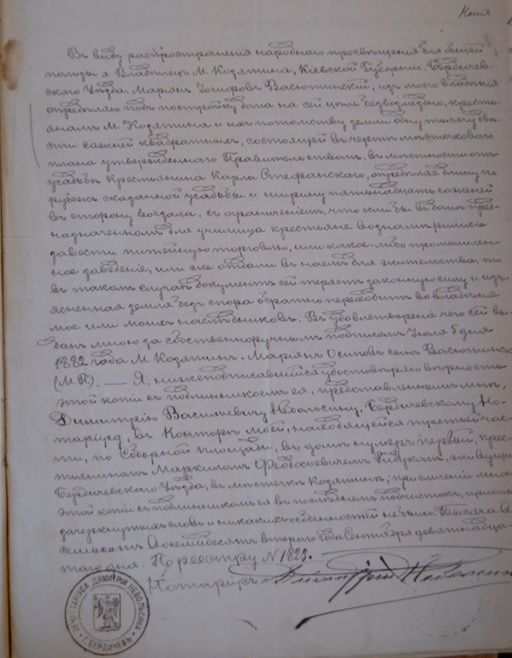 Копія
Въ виду распространенія народнаго просвѣщенія для общей
пользы я Владѣлецъ М. Козятина, Кіевской Губерніи, Бердичев-
скаго Уѣзда, Маріянъ Іосифовъ Васютинскій, изъ моего владѣнія
опредѣляю подъ постройку дома на сей цѣль безвозмездно, кресть-
янамъ М. Козятина и ихъ потомству земли одну тысячу двѣ-
сти сажней квадратныхъ, состоящей въ чертѣ мѣстечковаго
плана утвержденнаго Правительствомъ, въ мѣстности отъ
усадьбы Крестьянина Карла Стефанскаго, опредѣляя длину по
рубежъ сказанной усадьбы и ширину пятьнадцать саженей
въ сторону вокзала, съ ограниченіемъ, что если бы въ домѣ пред-
назначенномъ для училища крестьяне вознамѣрились
завести питейную торговлю, или какое-либо промышлен-
ное заведеніе, или же отдали въ наемъ для жительства, то
въ такомъ случаѣ документъ сей теряетъ законную силу и изъ-
ясненная земля безъ спора обратно переходитъ во владѣніе
мое или моихъ наслѣдниковъ. Въ удовлетвореніе чего сей вы-
данъ мною за собственноручнымъ подписомъ Іюля дня
1882 года М. Козятинъ. Маріянъ Осиповъ сынъ Васютинскій
(М.П). — Я, нижеподписавшійся удостовѣряю вѣрность
этой копіи съ подлинникомъ ея, представленнымъ мнѣ,
Димитрію Васильевичу Невольсину, Бердичевскому Но-
таріусу, въ Конторѣ моей, находящейся третьей час-
ти, по Соборной площади, въ домѣ нумеръ первый, крес-
тьяниномъ Маркомъ Ѳеодосьевичемъ живущимъ
Бердичевскаго Уѣзда, въ мѣстечкѣ Козятинѣ; при сличеніи мною
этой копіи съ подлинникомъ ея въ послѣднемъ подчистокъ, припи-
зачеркнутыхъ словъ и никакихъ особенностей не было. Тысяча
семьсотъ восемьдесятъ втораго года Сентября девятнадца-
таго дня. По реестру N 1823.
Нотаріусъ
ПЕЧ. НОТАРІУСА ДИМИТРІЯ НЕВОЛЬСИНА
Г. БЕРДИЧЕВЪ